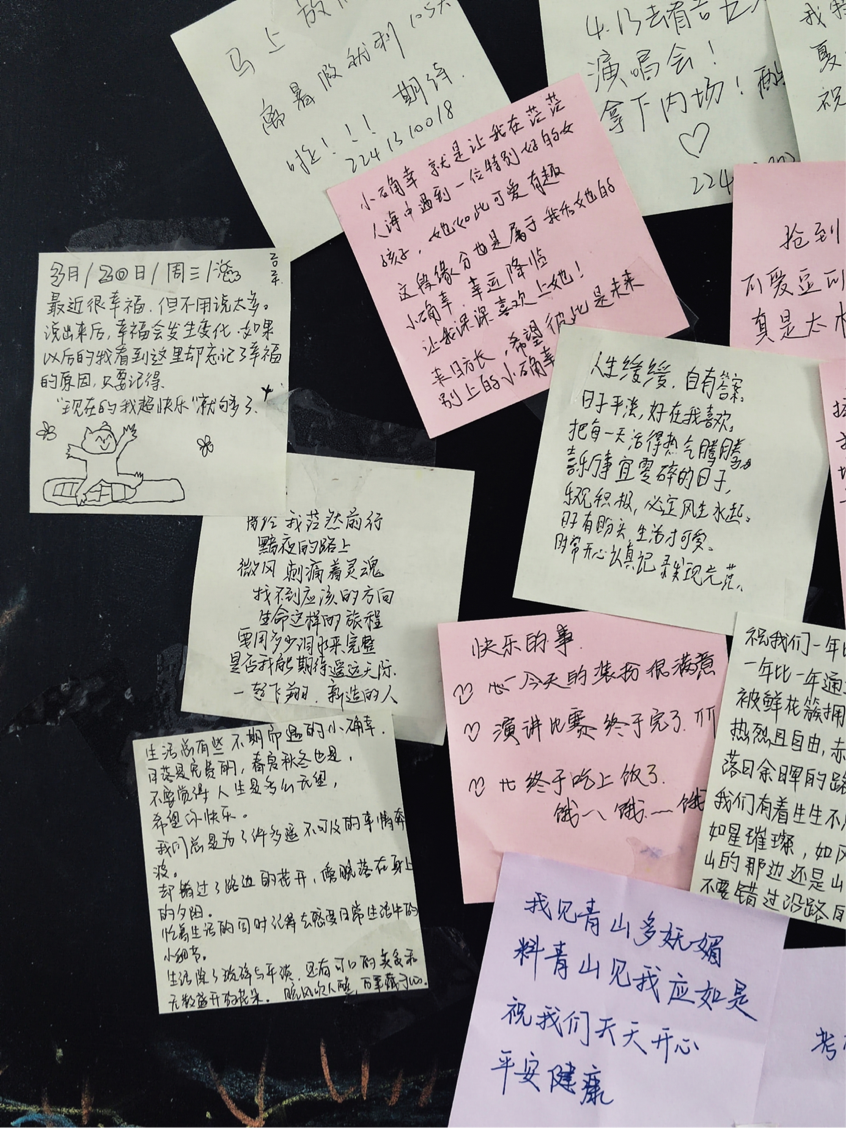 马上放
离暑假就剩105天
啦！！！ 期待.
22413 10018
4.13去看
演唱会！
拿下内场！
224
我
夏
祝
小确幸 就是让我在茫茫
人海中遇到一位特别好的女
孩子，她如此可爱有趣
这段缘分也是属于我和她的
小确幸.幸运降临
让我深深喜欢上她！
来日方长，希望彼此是未来
别上的小确幸
3月/20日/周三/
最近很幸福.但不用说太多。
说出来后，幸福会发生变化.如果
以后的我看到这里却忘记了幸福
的原因,只要记得.
“现在的我超快乐”就够了.
抢到
可爱
真是太
人生缓缓，自有答案。
日子平淡,好在我喜欢。
把每一天活得热气腾腾
喜乐事宜零碎的日子,
乐观积极，必定风生水起。
日子有盼头,生活才可爱。
时常开心认真记录
曾经我茫然前行
黯夜的路上
微风刺痛着灵魂
找不到应该的方向
生命这样的旅程
要用多少泪水来完整
是否我能期待遥远天际
一起飞翔.新造的人
快乐的事.
♡ 今天的装扮很满意
♡ 演讲比赛终于完了
♡ 终于吃上饭了.
饿一 饿.一饿
祝我们一年
一年比一年
被鲜花簇拥
热烈且自由,
落日余晖的
我们有着生生不
如星璀璨，如风
山的那边还是山
不要错过沿路
生活总有些不期而遇的小确幸.
日落是免费的，春夏秋冬也是，
不要觉得人生是多么无望，
希望你快乐。
我们总是为了许多遥不可及的事情奔
波。
却错过了路边的花开，傍晚落在身上
的夕阳。
忙着生活的同时记得去感受日常生活中的
小细节。
生活除了琐碎与平淡，还有可口的美食和
无数盛开的花朵。 晚风吹人醒，万事藏于心.
我见青山多妩媚
料青山见我应如是
祝我们天天开心
平安健康
考